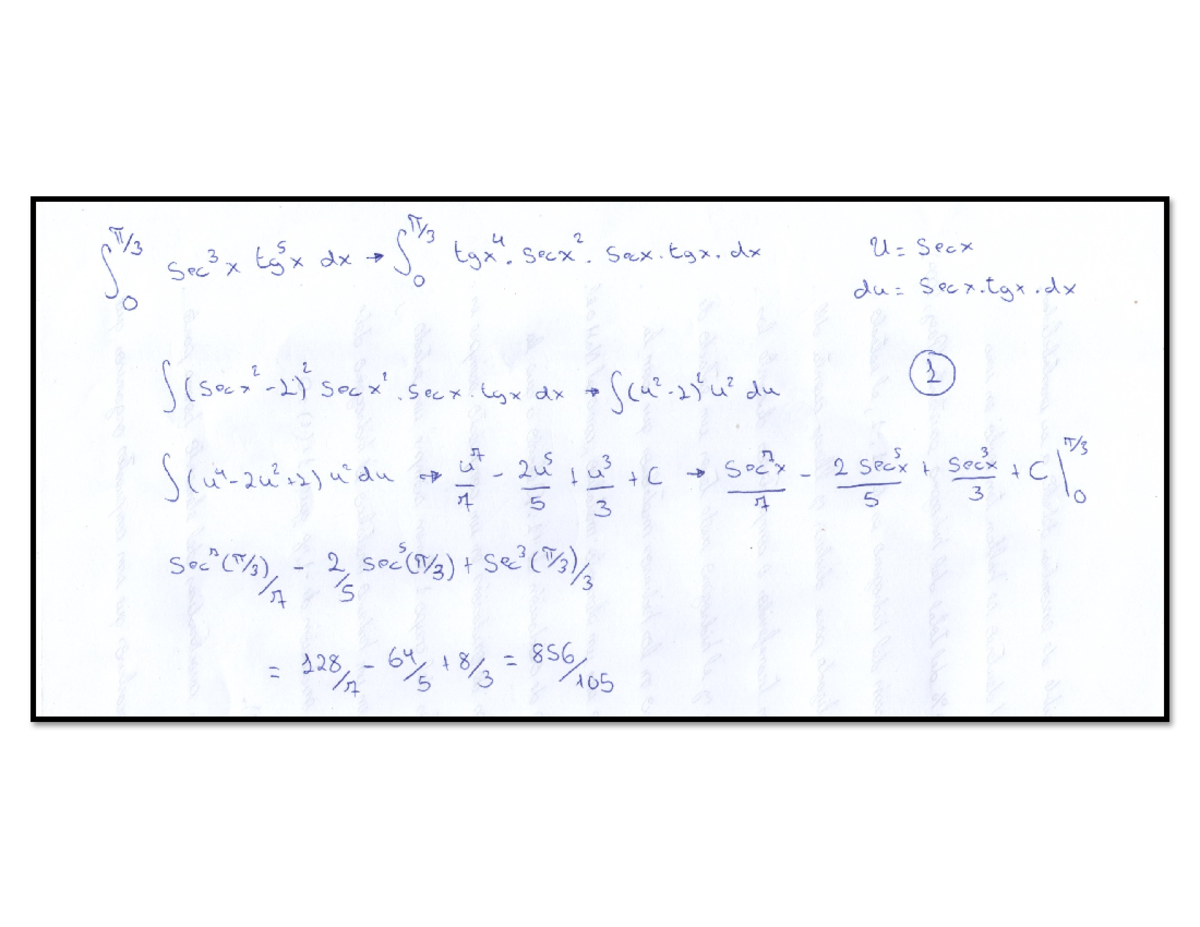 ∫₀^π/3 sec³x tg⁵x dx → ∫₀^π/3 tgx⁴. secx². secx.tgx.dx U = secx
du = secx.tgx.dx
∫(secx² - 1)² secx². secx. tgx dx → ∫(u² - 1)² u² du ①
∫(u⁴ - 2u² + 1) u² du → u⁷/7 - 2u⁵/5 + u³/3 + C → sec⁷x/7 - 2 sec⁵x/5 + sec³x/3 + C |₀^π/3
sec⁷(π/3)/7 - 2/5 sec⁵(π/3) + sec³(π/3)/3
= 128/7 - 64/5 + 8/3 = 856/105